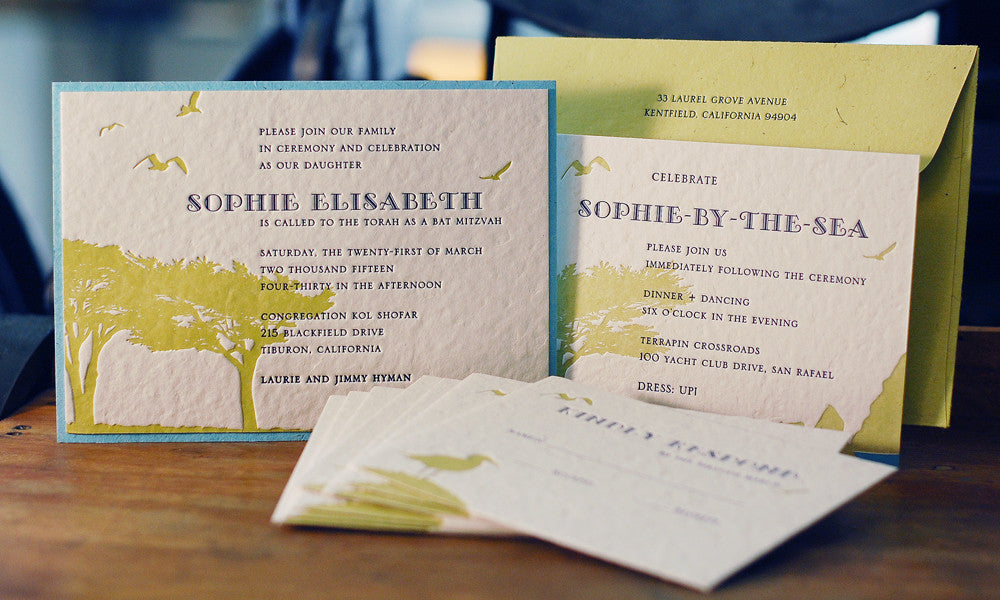 PLEASE JOIN OUR FAMILY
IN CEREMONY AND CELEBRATION
AS OUR DAUGHTER
SOPHIE ELISABETH
IS CALLED TO THE TORAH AS A BAT MITZVAH
SATURDAY, THE TWENTY-FIRST OF MARCH
TWO THOUSAND FIFTEEN
FOUR-THIRTY IN THE AFTERNOON
CONGREGATION KOL SHOFAR
215 BLACKFIELD DRIVE
TIBURON, CALIFORNIA
LAURIE AND JIMMY HYMAN
33 LAUREL GROVE AVENUE
KENTFIELD, CALIFORNIA 94904
CELEBRATE
SOPHIE-BY-THE-SEA
PLEASE JOIN US
IMMEDIATELY FOLLOWING THE CEREMONY
DINNER + DANCING
SIX O'CLOCK IN THE EVENING
TERRAPIN CROSSROADS
100 YACHT CLUB DRIVE, SAN RAFAEL
DRESS: UP!
KINDLY RESPOND